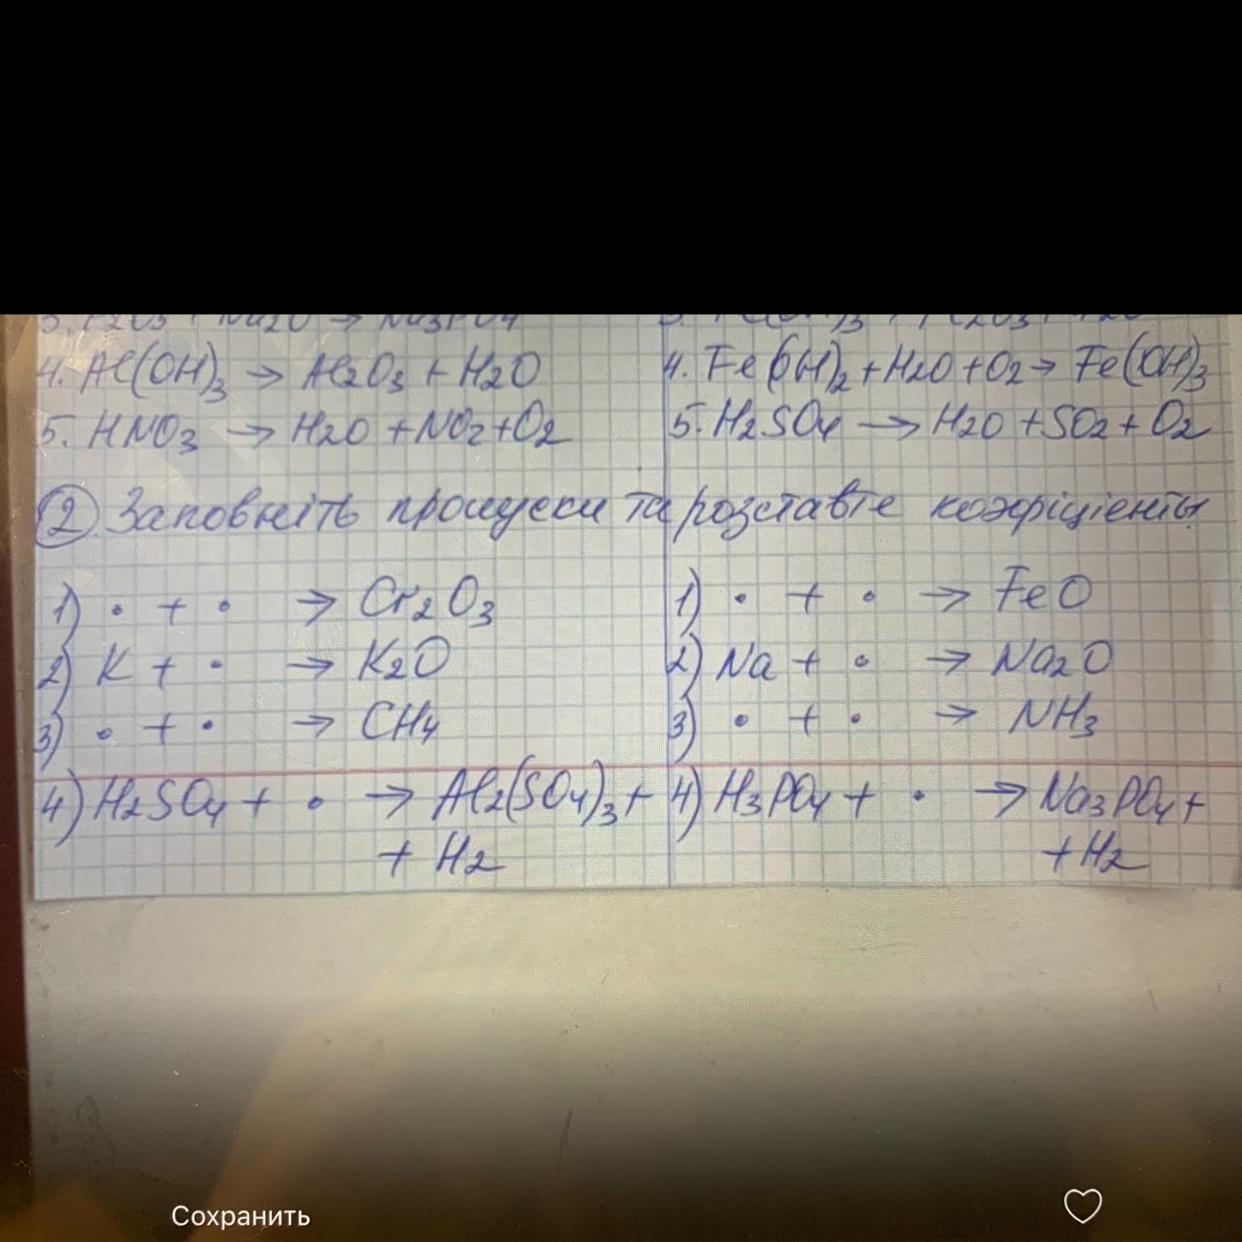 3. P2O3 + Na2O → Na3PO4
4. Al(OH)3 → Al2O3 + H2O
5. HNO3 → H2O + NO2 + O2
4. Fe(OH)2 + H2O + O2 → Fe(OH)3
5. H2SO4 → H2O + SO2 + O2
2 Заповніть пропуски та розставте коефіціенты
1) • + • → Cr2O3
2) K + • → K2O
3) • + • → CH4
4) H2SO4 + • → Al2(SO4)3 +
+ H2
1) • + • → FeO
2) Na + • → Na2O
3) • + • → NH3
4) H3PO4 + • → Na3PO4 +
+ H2
Сохранить